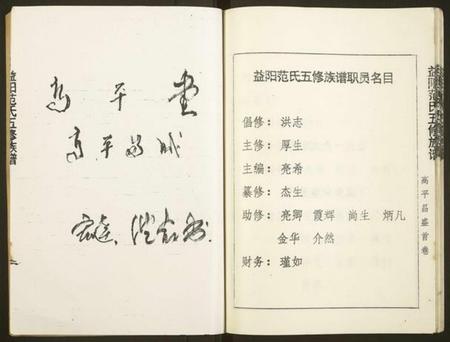 益阳范氏五修族谱
高平堂
高平昌盛
益阳范氏五修族谱职员名目
倡修：洪志
主修：厚生
主编：亮希
纂修：杰生
助修：亮卿 霞辉 尚生 炳凡
金华 介然
财务：瑾如
益阳范氏五修族谱
高平昌盛首卷